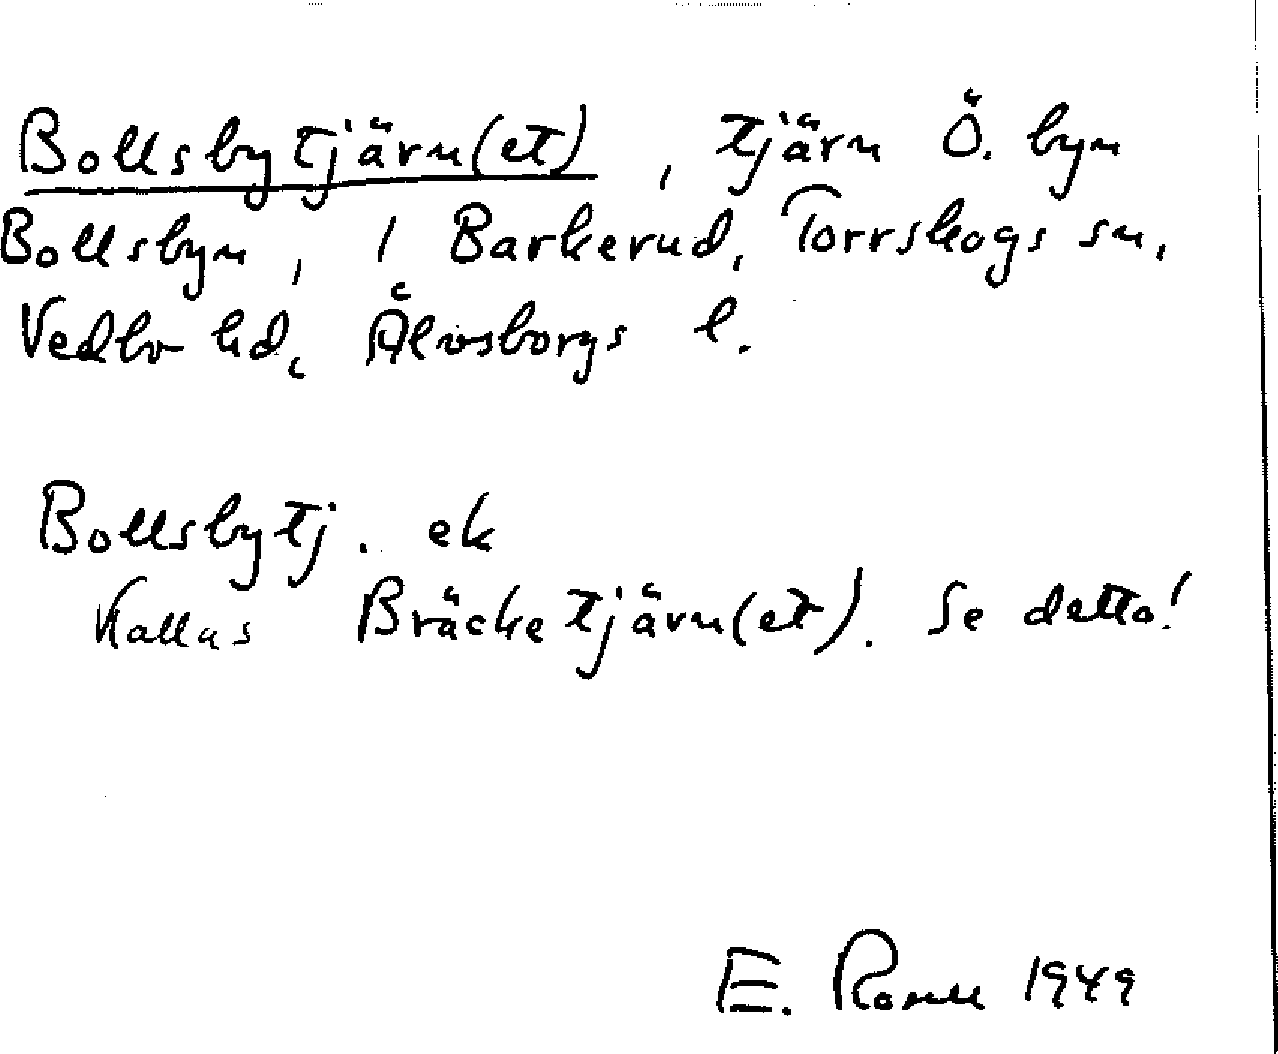 Bollsbytjärn(et), tjärn Ö. byn
Bollsbyn, / Barkerud, Torrskogs sn,
Vedbo hd, Älvsborgs l.
Bollsbytj. ek
kallas Bräcketjärn(et). Se detta!
E. 1949